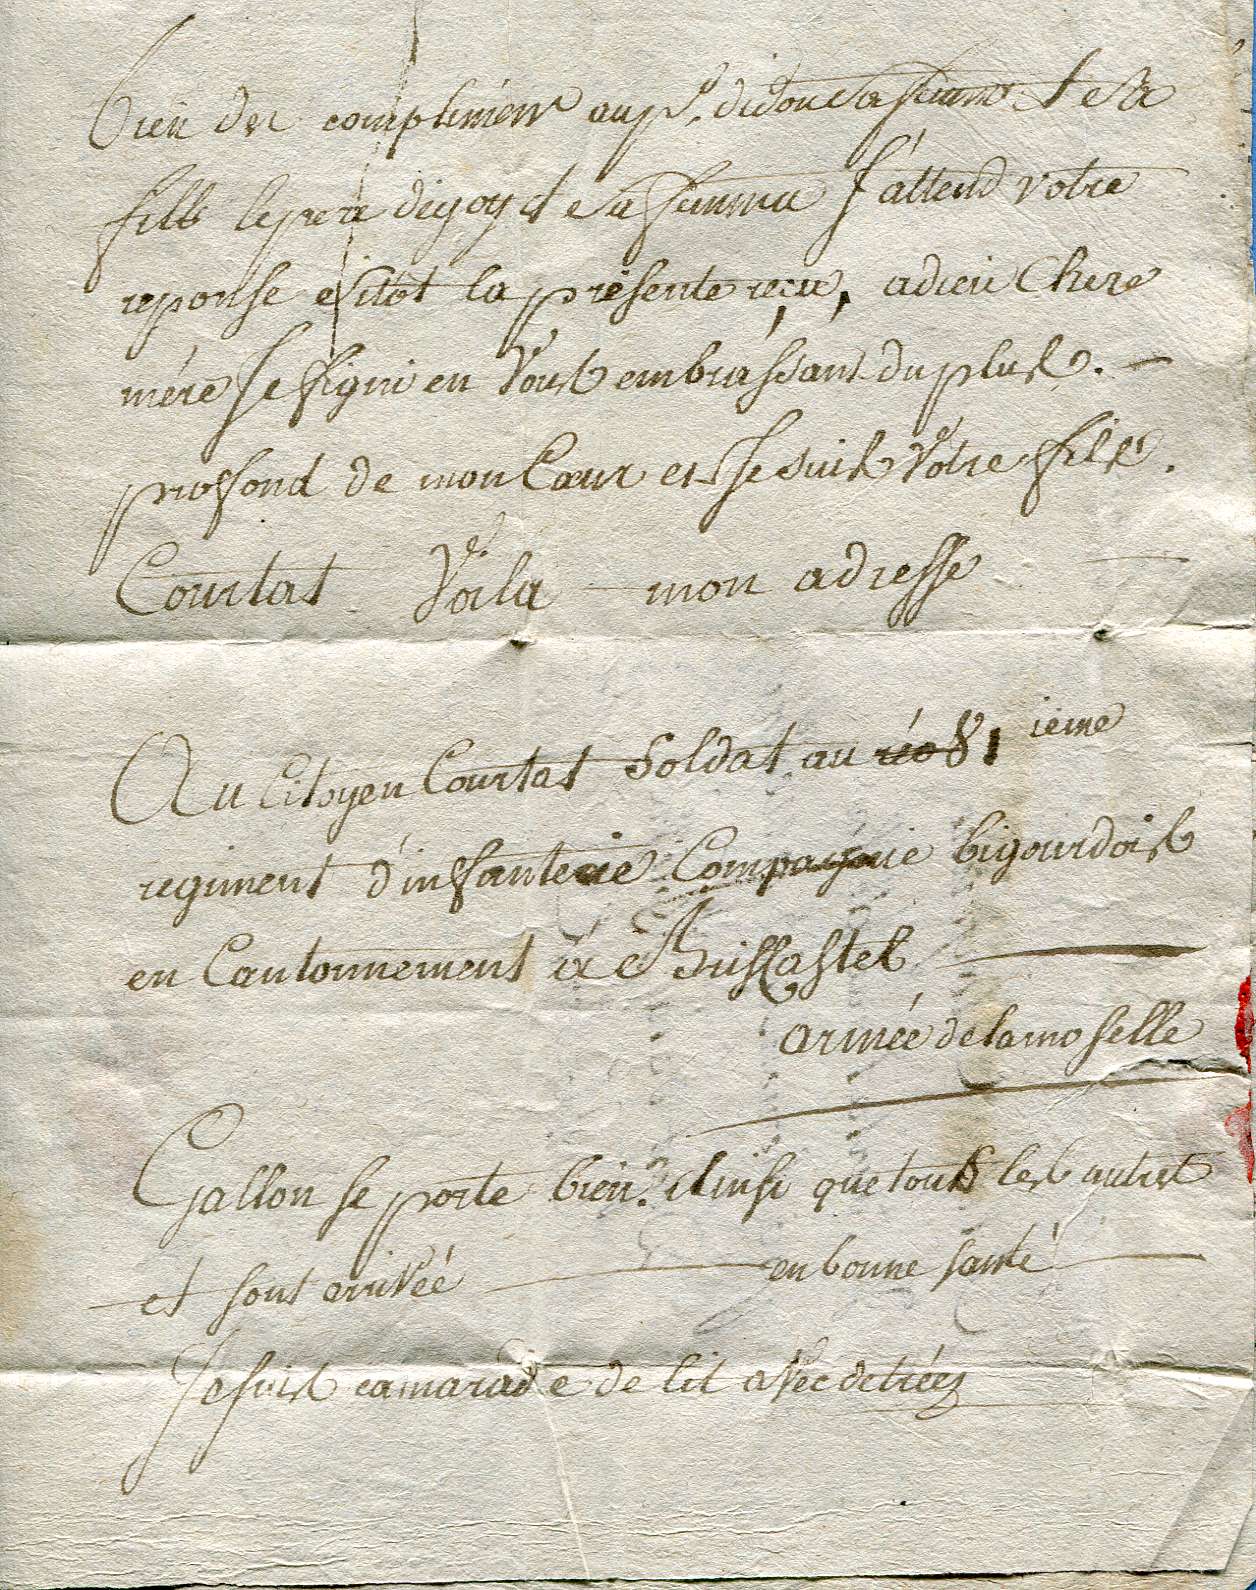 bien des compliment au p.e didon e sa femme et e sa
fille le pere digoy et e sa femme J'attend votre
reponse e sitot la présente reçue, adieu Chere
mére Je finni en Vous embrassant du plus.
profond de mon Cœur et Je suis Votre fils.
Courtat Voila mon adresse
Au Citoyen Courtat Soldat au 81 ieme
regiment d'infanterie Compagnie bigourdois
en Cantonnement á e Briscastel
armée de la moselle
Gallon se porte bien. Ainsi que tous les autres
et sont arrivéé en bonne santé
Je suis camarade de lit aVec detrées